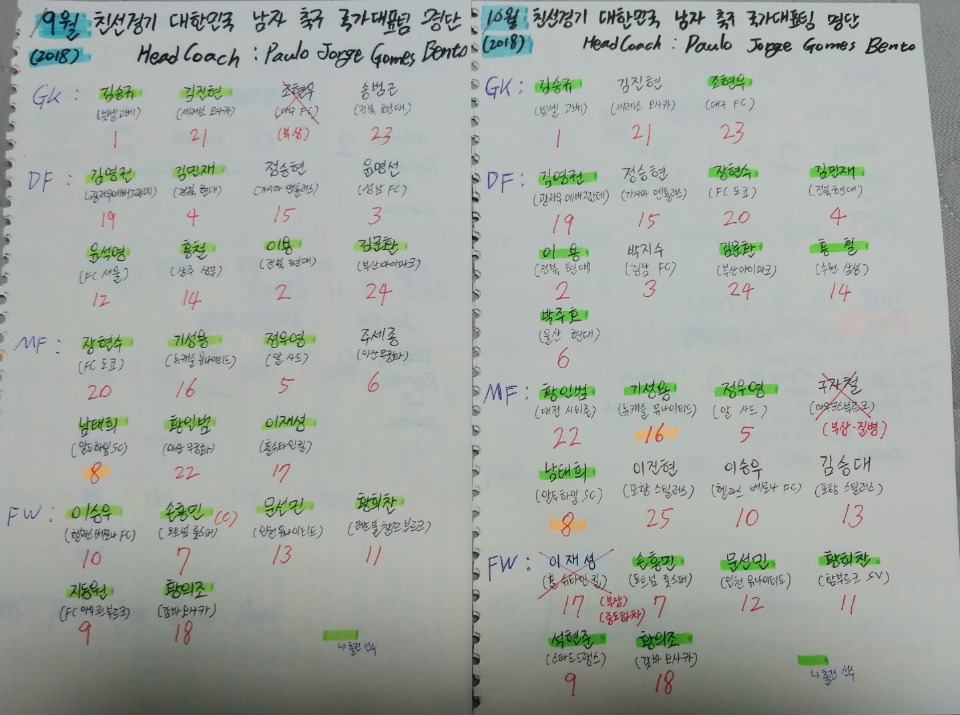 9월 친선경기 대한민국 남자 축구 국가대표팀 명단
(2018) Head Coach : Paulo Jorge Gomes Bento
GK : 김승규 김진현 조현우 송범근
(빗셀 고베) (세레소 오사카) (대구 FC) (전북 현대)
1 21 (부상) 23
DF : 김영권 김민재 정승현 윤영선
(광저우에버그란데) (전북 현대) (가시마 앤틀러스) (성남 FC)
19 4 15 3
윤석영 홍철 이용 김문환
(FC 서울) (상주 상무) (전북 현대) (부산아이파크)
12 14 2 24
MF : 장현수 기성용 정우영 주세종
(FC 도쿄) (뉴캐슬 유나이티드) (알 사드) (아산무궁화)
20 16 5 6
남태희 황인범 이재성
(알두하일SC) (아산 무궁화) (홀슈타인킬)
8 22 17
FW : 이승우 손흥민 (C) 문선민 황희찬
(헬라스베로나 FC) (토트넘 홋스퍼) (인천 유나이티드)
10 7 13 11
지동원 황의조
(FC 아우크스부르크) (감바 오사카)
9 18
니출전 선수
10월 친선경기 대한민국 남자 축구 국가대표팀 명단
(2018) Head Coach : Paulo Jorge Gomes Bento
GK : 김승규 김진현 조현우
(빗셀 고베) (세레소 오사카) (대구 FC)
1 21 23
DF : 김영권 정승현 장현수 김민재
(광저우에버그란데) (가시마 앤틀러스) (FC 도쿄) (전북현대)
19 15 20 4
이용 박지수 김문환 홍철
(전북 현대) (경남 FC) (부산아이파크) (수원 삼성)
2 3 24 14
박주호
(울산 현대)
6
MF : 황인범 기성용 정우영 구자철
(대전 시티즌) (뉴캐슬 유나이티드) (알 사드) (아우크스부르크)
22 16 5 (부상-질병)
남태희 이진현 이승우 김승대
(알두하일 SC) (포항 스틸러스) (헬라스 베로나 FC) (포항 스틸러스)
8 25 10 13
FW : 이재성 손흥민 문선민 황희찬
(홀슈타인 킬) (토트넘 홋스퍼) (인천 유나이티드) (함부르크 SV)
17 (부상) 7 12 11
(중도하차)
석현준 황의조
(스타드드랭스) (감바 오사카)
9 18
니출전 선수